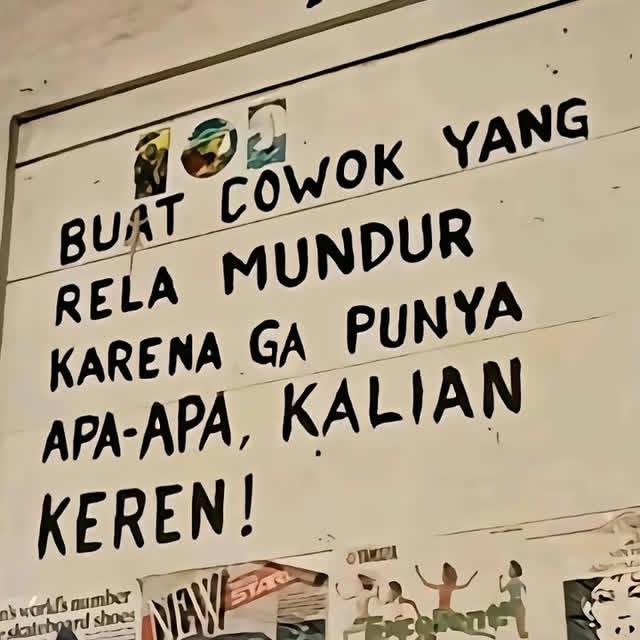 BUAT COWOK YANG
RELA MUNDUR
KARENA GA PUNYA
APA-APA, KALIAN
KEREN!
YAMAHA
world's number
skateboard shoes
NEW
START